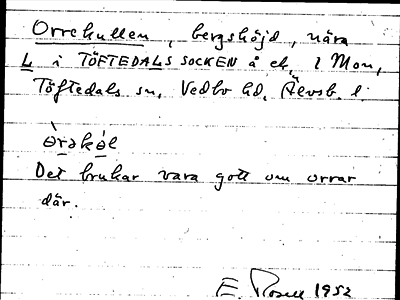 Orrekullen, bergshöjd, nära
L i TÖFTEDALS SOCKEN å ek. 1 Mon,
Töftedals sn, Vedbo hd, Älvsb. l.
Det brukar vara gott om orrar
där.
E. Rosell 1952